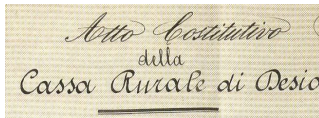 Atto Costitutivo
della
Cassa Rurale di Desio